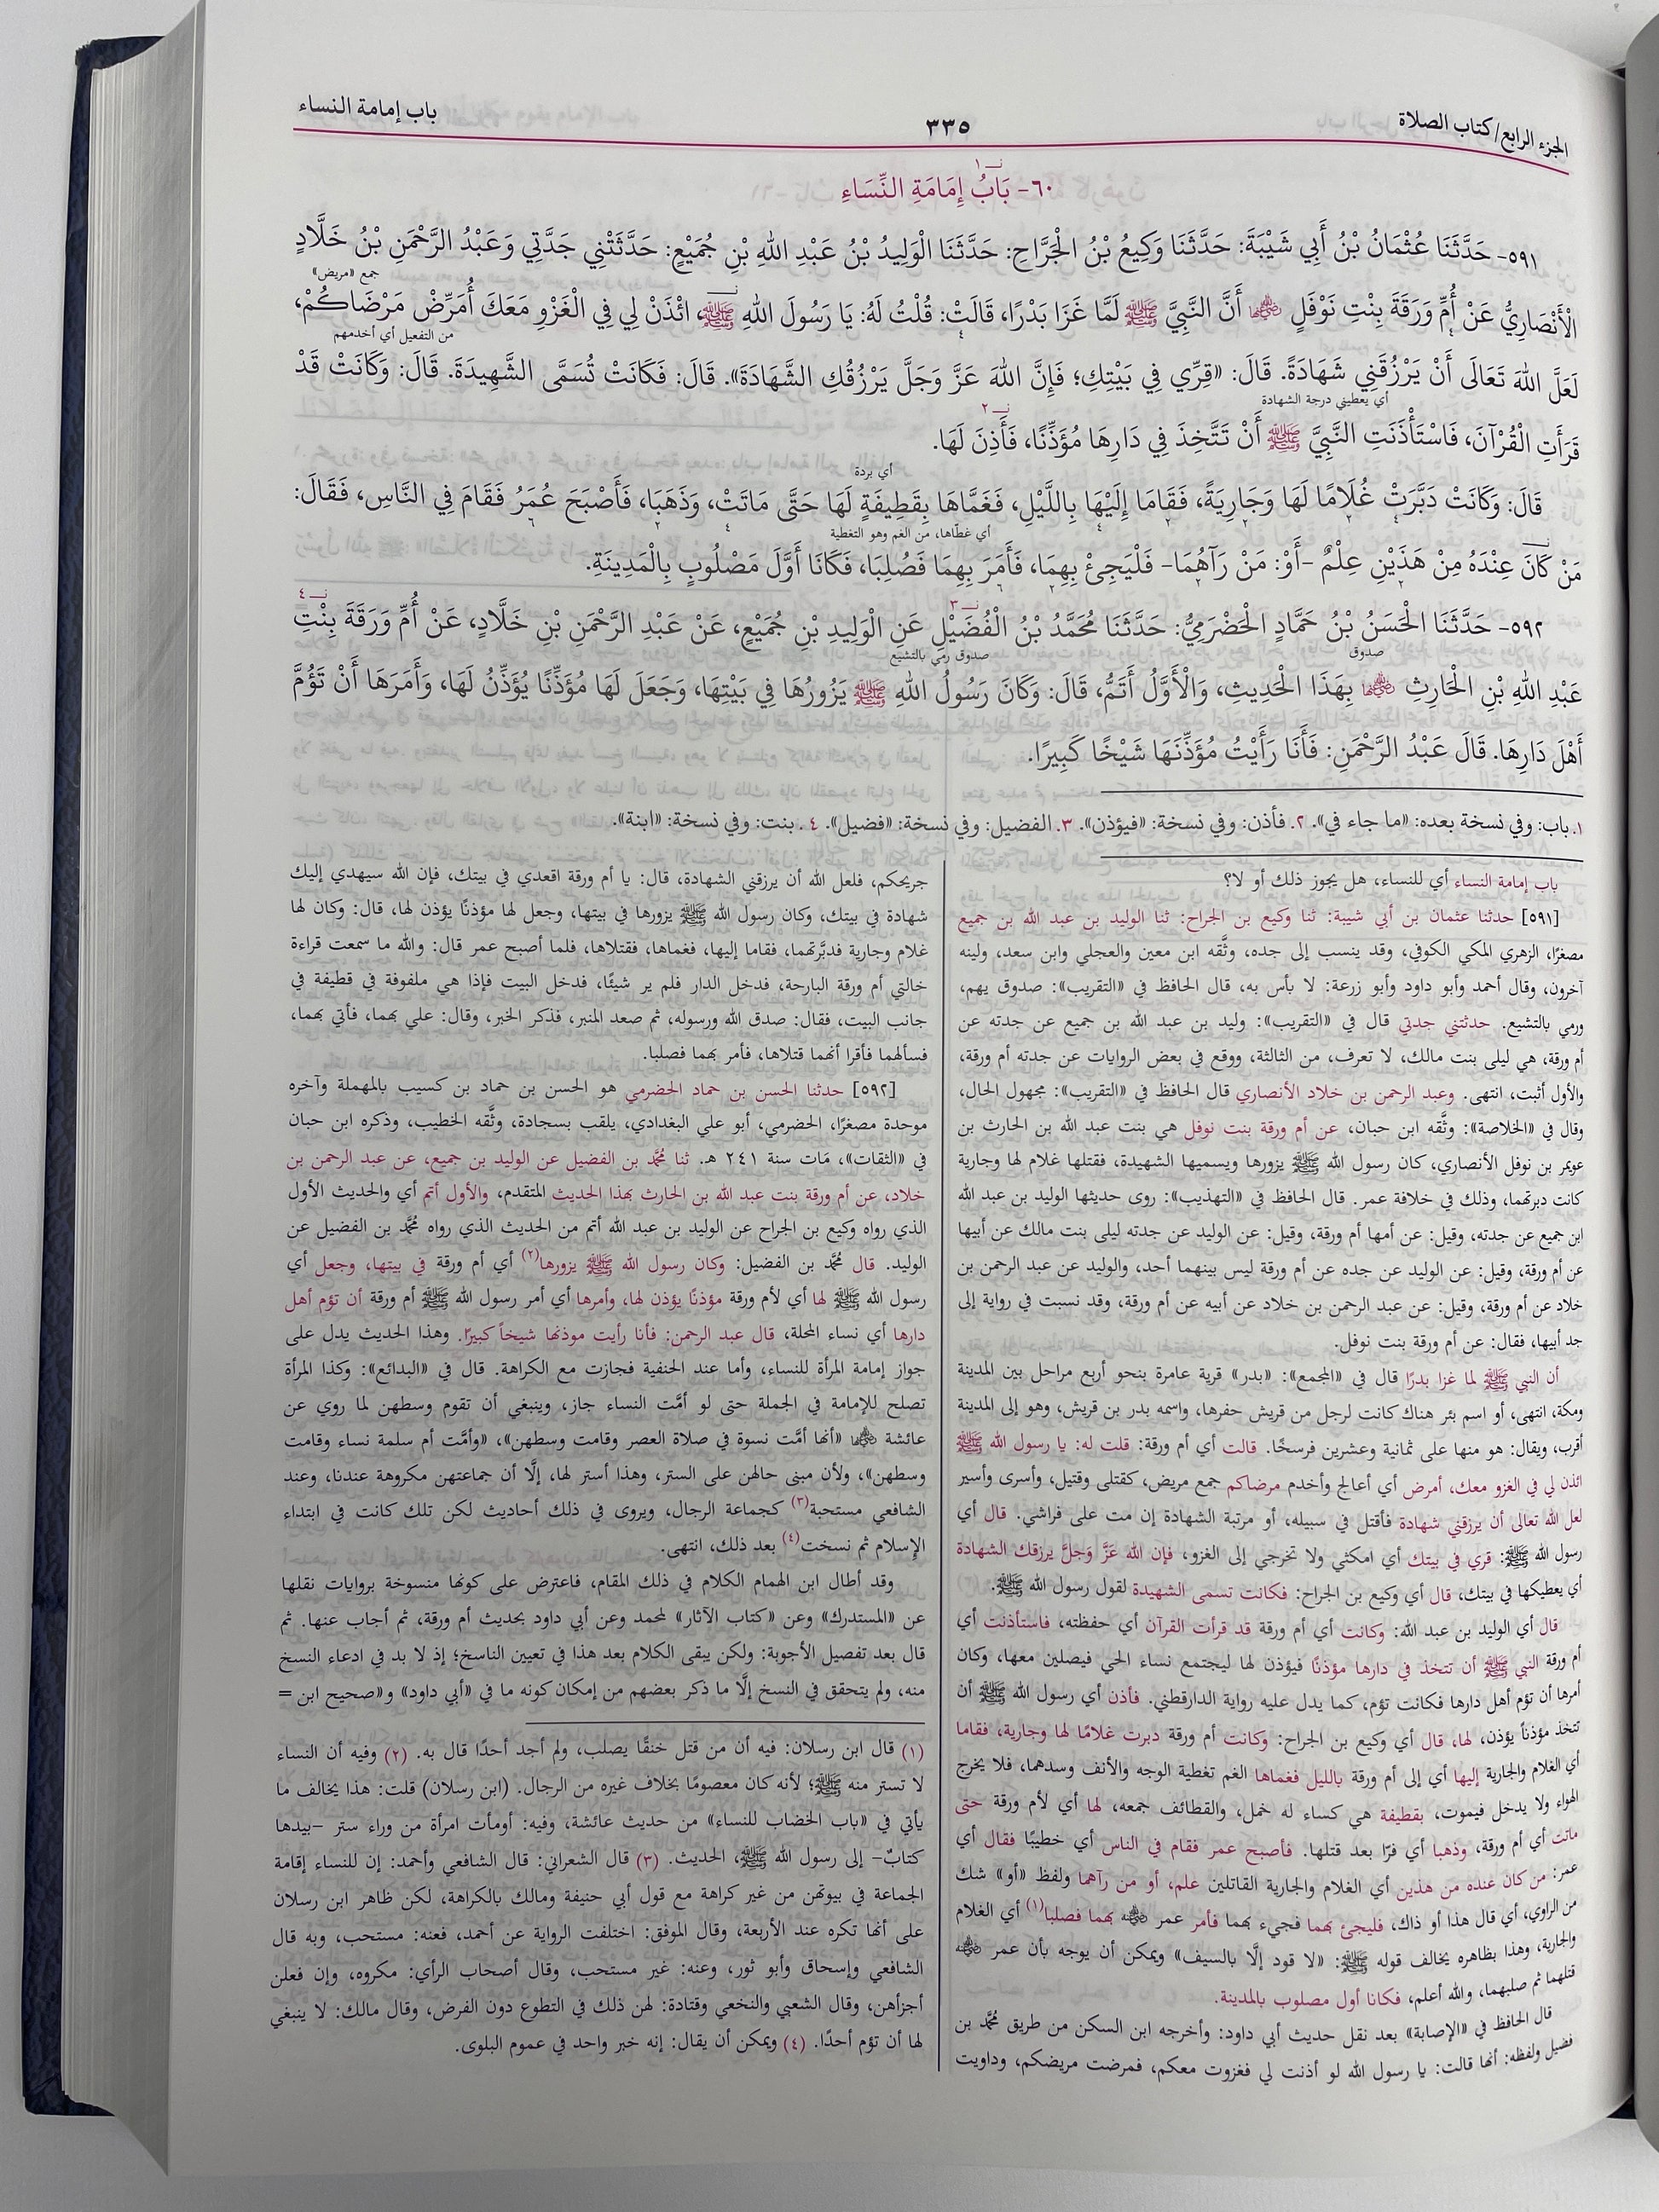 الجزء الرابع/كتاب الصلاة
٣٣٥
باب إمامة النساء
نـ١
٦٠- بَابُ إِمَامَةِ النِّسَاءِ
٥٩١- حَدَّثَنَا عُثْمَانُ بْنُ أَبِي شَيْبَةَ: حَدَّثَنَا وَكِيعُ بْنُ الْجَرَّاحِ: حَدَّثَنَا الْوَلِيدُ بْنُ عَبْدِ اللهِ بْنِ جُمَيْعٍ: حَدَّثَتْنِي جَدَّتِي وَعَبْدُ الرَّحْمَنِ بْنُ خَلَّادٍ
جمع «مريض»
الْأَنْصَارِيُّ عَنْ أُمِّ وَرَقَةَ بِنْتِ نَوْفَلٍ رضي الله عنها أَنَّ النَّبِيَّ ﷺ لَمَّا غَزَا بَدْرًا، قَالَتْ: قُلْتُ لَهُ: يَا رَسُولَ اللهِ ﷺ، ائْذَنْ لِي فِي الْغَزْوِ مَعَكَ أُمَرِّضْ مَرْضَاكُمْ،
من التفعيل أي أخدمهم
لَعَلَّ اللهَ تَعَالَى أَنْ يَرْزُقَنِي شَهَادَةً. قَالَ: «قِرِّي فِي بَيْتِكِ؛ فَإِنَّ اللهَ عَزَّ وَجَلَّ يَرْزُقُكِ الشَّهَادَةَ». قَالَ: فَكَانَتْ تُسَمَّى الشَّهِيدَةَ. قَالَ: وَكَانَتْ قَدْ
أي يعطيني درجة الشهادة
نـ٢
قَرَأَتِ الْقُرْآنَ، فَاسْتَأْذَنَتِ النَّبِيَّ ﷺ أَنْ تَتَّخِذَ فِي دَارِهَا مُؤَذِّنًا، فَأَذِنَ لَهَا.
أي بردة
قَالَ: وَكَانَتْ دَبَّرَتْ غُلَامًا لَهَا وَجَارِيَةً، فَقَامَا إِلَيْهَا بِاللَّيْلِ، فَغَمَّاهَا بِقَطِيفَةٍ لَهَا حَتَّى مَاتَتْ، وَذَهَبَا، فَأَصْبَحَ عُمَرُ فَقَامَ فِي النَّاسِ، فَقَالَ:
أي غطّاها، من الغم وهو التغطية
مَنْ كَانَ عِنْدَهُ مِنْ هَذَيْنِ عِلْمٌ -أَوْ: مَنْ رَآهُمَا- فَلْيَجِئْ بِهِمَا، فَأَمَرَ بِهِمَا فَصُلِبَا، فَكَانَا أَوَّلَ مَصْلُوبٍ بِالْمَدِينَةِ.
نـ٣
نـ٤
٥٩٢- حَدَّثَنَا الْحَسَنُ بْنُ حَمَّادٍ الْحَضْرَمِيُّ: حَدَّثَنَا مُحَمَّدُ بْنُ الْفُضَيْلِ عَنِ الْوَلِيدِ بْنِ جُمَيْعٍ، عَنْ عَبْدِ الرَّحْمَنِ بْنِ خَلَّادٍ، عَنْ أُمِّ وَرَقَةَ بِنْتِ
صدوق
صدوق رمي بالتشيع
عَبْدِ اللهِ بْنِ الْحَارِثِ رضي الله عنها بِهَذَا الْحَدِيثِ، وَالْأَوَّلُ أَتَمُّ، قَالَ: وَكَانَ رَسُولُ اللهِ ﷺ يَزُورُهَا فِي بَيْتِهَا، وَجَعَلَ لَهَا مُؤَذِّنًا يُؤَذِّنُ لَهَا، وَأَمَرَهَا أَنْ تَؤُمَّ
أَهْلَ دَارِهَا. قَالَ عَبْدُ الرَّحْمَنِ: فَأَنَا رَأَيْتُ مُؤَذِّنَهَا شَيْخًا كَبِيرًا.
١. باب: وفي نسخة بعده: «ما جاء في». ٢. فأذن: وفي نسخة: «فيؤذن». ٣. الفضيل: وفي نسخة: «فضيل». ٤. بنت: وفي نسخة: «ابنة».
باب إمامة النساء أي للنساء، هل يجوز ذلك أو لا؟
[٥٩١] حدثنا عثمان بن أبي شيبة: ثنا وكيع بن الجراح: ثنا الوليد بن عبد الله بن جميع
مصغرًا، الزهري المكي الكوفي، وقد ينسب إلى جده، وثَّقه ابن معين والعجلي وابن سعد، ولينه
آخرون، وقال أحمد وأبو داود وأبو زرعة: لا بأس به، قال الحافظ في «التقريب»: صدوق يهم،
ورمي بالتشيع. حدثتني جدتي قال في «التقريب»: وليد بن عبد الله بن جميع عن جدته عن
أم ورقة، هي ليلى بنت مالك، لا تعرف، من الثالثة، ووقع في بعض الروايات عن جدته أم ورقة،
والأول أثبت، انتهى. وعبد الرحمن بن خلاد الأنصاري قال الحافظ في «التقريب»: مجهول الحال،
وقال في «الخلاصة»: وثَّقه ابن حبان، عن أم ورقة بنت نوفل هي بنت عبد الله بن الحارث بن
عويمر بن نوفل الأنصاري، كان رسول الله ﷺ يزورها ويسميها الشهيدة، فقتلها غلام لها وجارية
كانت دبرتهما، وذلك في خلافة عمر. قال الحافظ في «التهذيب»: روى حديثها الوليد بن عبد الله
ابن جميع عن جدته، وقيل: عن أمها أم ورقة، وقيل: عن الوليد عن جدته ليلى بنت مالك عن أبيها
عن أم ورقة، وقيل: عن الوليد عن جده عن أم ورقة ليس بينهما أحد، والوليد عن عبد الرحمن بن
خلاد عن أم ورقة، وقيل: عن عبد الرحمن بن خلاد عن أبيه عن أم ورقة، وقد نسبت في رواية إلى
جد أبيها، فقال: عن أم ورقة بنت نوفل.
أن النبي ﷺ لما غزا بدرًا قال في «المجمع»: «بدر» قرية عامرة بنحو أربع مراحل بين المدينة
ومكة، انتهى، أو اسم بئر هناك كانت لرجل من قريش حفرها، واسمه بدر بن قريش، وهو إلى المدينة
أقرب، ويقال: هو منها على ثمانية وعشرين فرسخًا. قالت أي أم ورقة: قلت له: يا رسول الله ﷺ
ائذن لي في الغزو معك، أمرض أي أعالج وأخدم مرضاكم جمع مريض، كقتلى وقتيل، وأسرى وأسير
لعل الله تعالى أن يرزقني شهادة فأقتل في سبيله، أو مرتبة الشهادة إن مت على فراشي. قال أي
رسول الله ﷺ: قري في بيتك أي امكثي ولا تخرجي إلى الغزو، فإن الله عَزَّ وَجَلَّ يرزقك الشهادة
أي يعطيكها في بيتك، قال أي وكيع بن الجراح: فكانت تسمى الشهيدة لقول رسول الله ﷺ.
قال أي الوليد بن عبد الله: وكانت أي أم ورقة قد قرأت القرآن أي حفظته، فاستأذنت أي
أم ورقة النبي ﷺ أن تتخذ في دارها مؤذنًا فيؤذن لها ليجتمع نساء الحي فيصلين معها، وكان
أمرها أن تؤم أهل دارها فكانت تؤم، كما يدل عليه رواية الدارقطني. فأذن أي رسول الله ﷺ أن
تتخذ مؤذناً يؤذن، لها، قال أي وكيع بن الجراح: وكانت أم ورقة دبرت غلامًا لها وجارية، فقاما
أي الغلام والجارية إليها أي إلى أم ورقة بالليل فغماها الغم تغطية الوجه والأنف وسدهما، فلا يخرج
الهواء ولا يدخل فيموت، بقطيفة هي كساء له خمل، والقطائف جمعه، لها أي لأم ورقة حتى
ماتت أي أم ورقة، وذهبا أي فرّا بعد قتلها. فأصبح عمر فقام في الناس أي خطيبًا فقال أي
عمر: من كان عنده من هذين أي الغلام والجارية القاتلين علم، أو من رآهما ولفظ «أو» شك
من الراوي، أي قال هذا أو ذاك، فليجئ بهما فجيء بهما فأمر عمر رضي الله عنه بهما فصلبا(١) أي الغلام
والجارية، وهذا بظاهره يخالف قوله ﷺ: «لا قود إلَّا بالسيف» ويمكن أن يوجه بأن عمر رضي الله عنه
قتلهما ثم صلبهما، والله أعلم، فكانا أول مصلوب بالمدينة.
قال الحافظ في «الإصابة» بعد نقل حديث أبي داود: وأخرجه ابن السكن من طريق محمَّد بن
فضيل ولفظه: أنها قالت: يا رسول الله لو أذنت لي فغزوت معكم، فمرضت مريضكم، وداويت
جريحكم، فلعل الله أن يرزقني الشهادة، قال: يا أم ورقة اقعدي في بيتك، فإن الله سيهدي إليك
شهادة في بيتك، وكان رسول الله ﷺ يزورها في بيتها، وجعل لها مؤذنًا يؤذن لها، قال: وكان لها
غلام وجارية فدبَّرتهما، فقاما إليها، فغماها، فقتلاها، فلما أصبح عمر قال: والله ما سمعت قراءة
خالتي أم ورقة البارحة، فدخل الدار فلم ير شيئًا، فدخل البيت فإذا هي ملفوفة في قطيفة في
جانب البيت، فقال: صدق الله ورسوله، ثم صعد المنبر، فذكر الخبر، وقال: علي بهما، فأتي بهما،
فسألهما فأقرا أنهما قتلاها، فأمر بهما فصلبا.
[٥٩٢] حدثنا الحسن بن حماد الحضرمي هو الحسن بن حماد بن كسيب بالمهملة وآخره
موحدة مصغرًا، الحضرمي، أبو علي البغدادي، يلقب بسجادة، وثَّقه الخطيب، وذكره ابن حبان
في «الثقات»، مَات سنة ٢٤١ هـ. ثنا محمَّد بن الفضيل عن الوليد بن جميع، عن عبد الرحمن بن
خلاد، عن أم ورقة بنت عبد الله بن الحارث بهذا الحديث المتقدم، والأول أتم أي والحديث الأول
الذي رواه وكيع بن الجراح عن الوليد بن عبد الله أتم من الحديث الذي رواه محمَّد بن الفضيل عن
الوليد. قال محمَّد بن الفضيل: وكان رسول الله ﷺ يزورها(٢) أي أم ورقة في بيتها، وجعل أي
رسول الله ﷺ لها أي لأم ورقة مؤذنًا يؤذن لها، وأمرها أي أمر رسول الله ﷺ أم ورقة أن تؤم أهل
دارها أي نساء المحلة، قال عبد الرحمن: فأنا رأيت موذنها شيخاً كبيرًا. وهذا الحديث يدل على
جواز إمامة المرأة للنساء، وأما عند الحنفية فجازت مع الكراهة. قال في «البدائع»: وكذا المرأة
تصلح للإمامة في الجملة حتى لو أمَّت النساء جاز، وينبغي أن تقوم وسطهن لما روي عن
عائشة رضي الله عنها «أنها أمَّت نسوة في صلاة العصر وقامت وسطهن»، «وأمَّت أم سلمة نساء وقامت
وسطهن»، ولأن مبنى حالهن على الستر، وهذا أستر لها، إلَّا أن جماعتهن مكروهة عندنا، وعند
الشافعي مستحبة(٣) كجماعة الرجال، ويروى في ذلك أحاديث لكن تلك كانت في ابتداء
الإسلام ثم نسخت(٤) بعد ذلك، انتهى.
وقد أطال ابن الهمام الكلام في ذلك المقام، فاعترض على كونها منسوخة بروايات نقلها
عن «المستدرك» وعن «كتاب الآثار» لمحمد وعن أبي داود بحديث أم ورقة، ثم أجاب عنها. ثم
قال بعد تفصيل الأجوبة: ولكن يبقى الكلام بعد هذا في تعيين الناسخ؛ إذ لا بد في ادعاء النسخ
منه، ولم يتحقق في النسخ إلَّا ما ذكر بعضهم من إمكان كونه ما في «أبي داود» و«صحيح ابن =
(١) قال ابن رسلان: فيه أن من قتل خنقًا يصلب، ولم أجد أحدًا قال به. (٢) وفيه أن النساء
لا تستر منه ﷺ؛ لأنه كان معصومًا بخلاف غيره من الرجال. (ابن رسلان) قلت: هذا يخالف ما
يأتي في «باب الخضاب للنساء» من حديث عائشة، وفيه: أومأت امرأة من وراء ستر -بيدها
كتابٌ- إلى رسول الله ﷺ، الحديث. (٣) قال الشعراني: قال الشافعي وأحمد: إن للنساء إقامة
الجماعة في بيوتهن من غير كراهة مع قول أبي حنيفة ومالك بالكراهة، لكن ظاهر ابن رسلان
على أنها تكره عند الأربعة، وقال الموفق: اختلفت الرواية عن أحمد، فعنه: مستحب، وبه قال
الشافعي وإسحاق وأبو ثور، وعنه: غير مستحب، وقال أصحاب الرأي: مكروه، وإن فعلن
أجزأهن، وقال الشعبي والنخعي وقتادة: لهن ذلك في التطوع دون الفرض، وقال مالك: لا ينبغي
لها أن تؤم أحدًا. (٤) ويمكن أن يقال: إنه خبر واحد في عموم البلوى.